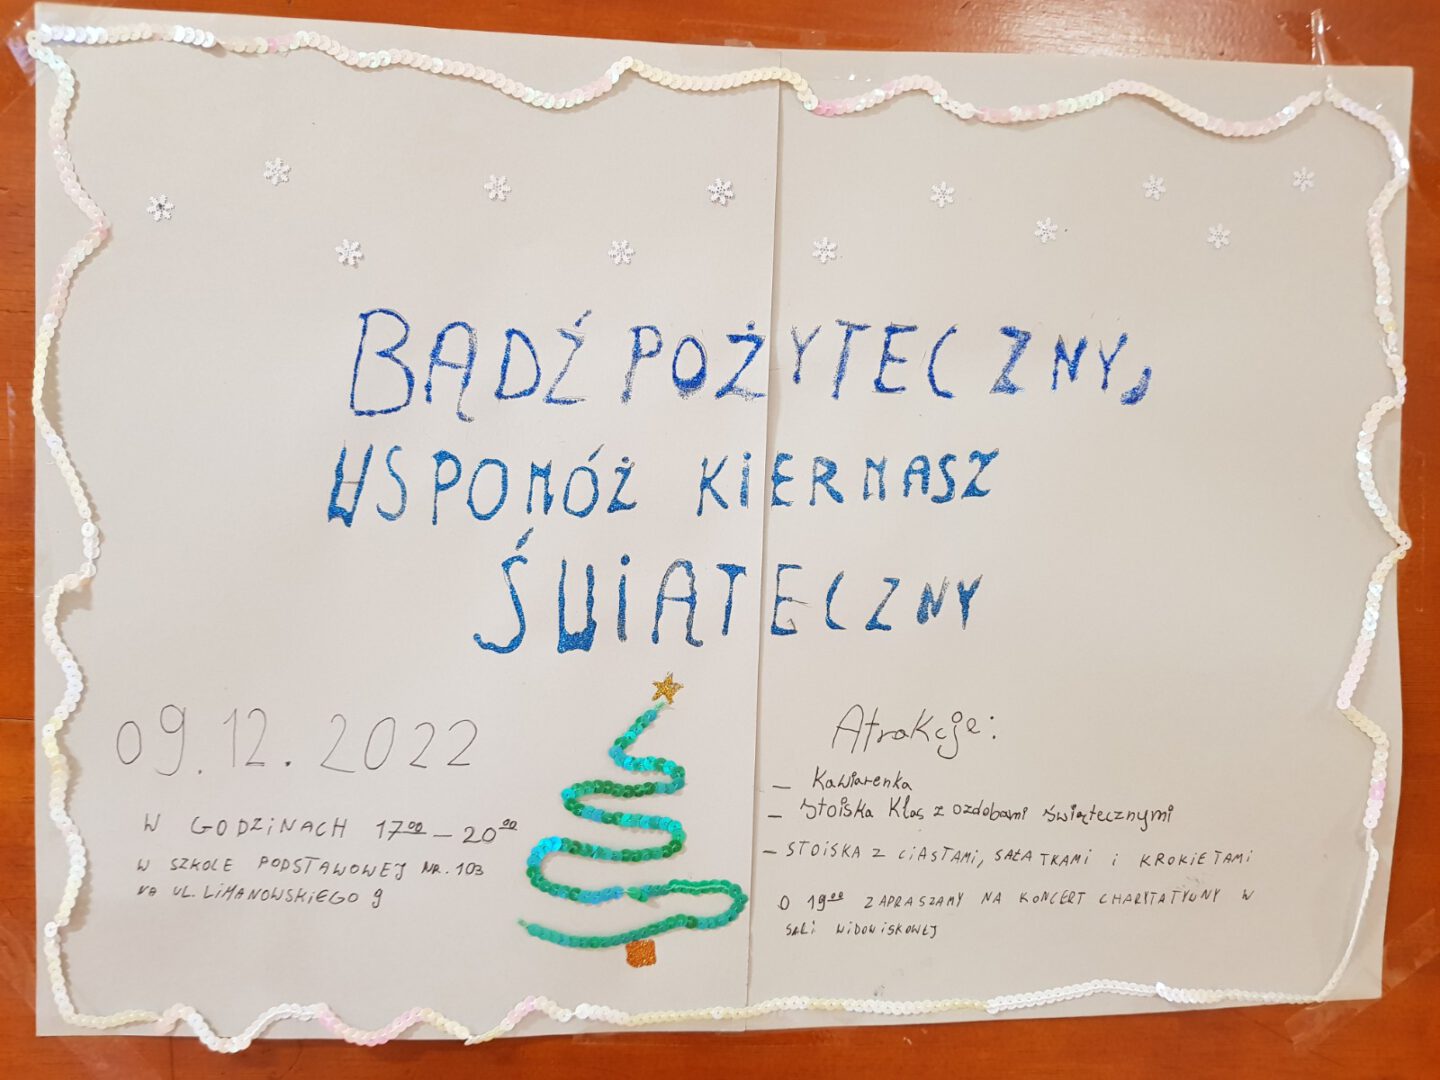 BĄDŹ POŻYTECZNY,
WSPOMÓŻ KIERMASZ
ŚWIĄTECZNY
09.12.2022
W GODZINACH 17⁰⁰ – 20⁰⁰
W SZKOLE PODSTAWOWEJ NR. 103
na UL. LIMANOWSKIEGO 9
Atrakcje:
– Kawiarenka
– Stoiska Klas z ozdobami świątecznymi
– STOISKA Z CIASTAMI, SAŁATKAMI i KROKIETAMI
O 19⁰⁰ ZAPRASZAMY NA KONCERT CHARYTATYWNY W
SALI WIDOWISKOWEJ